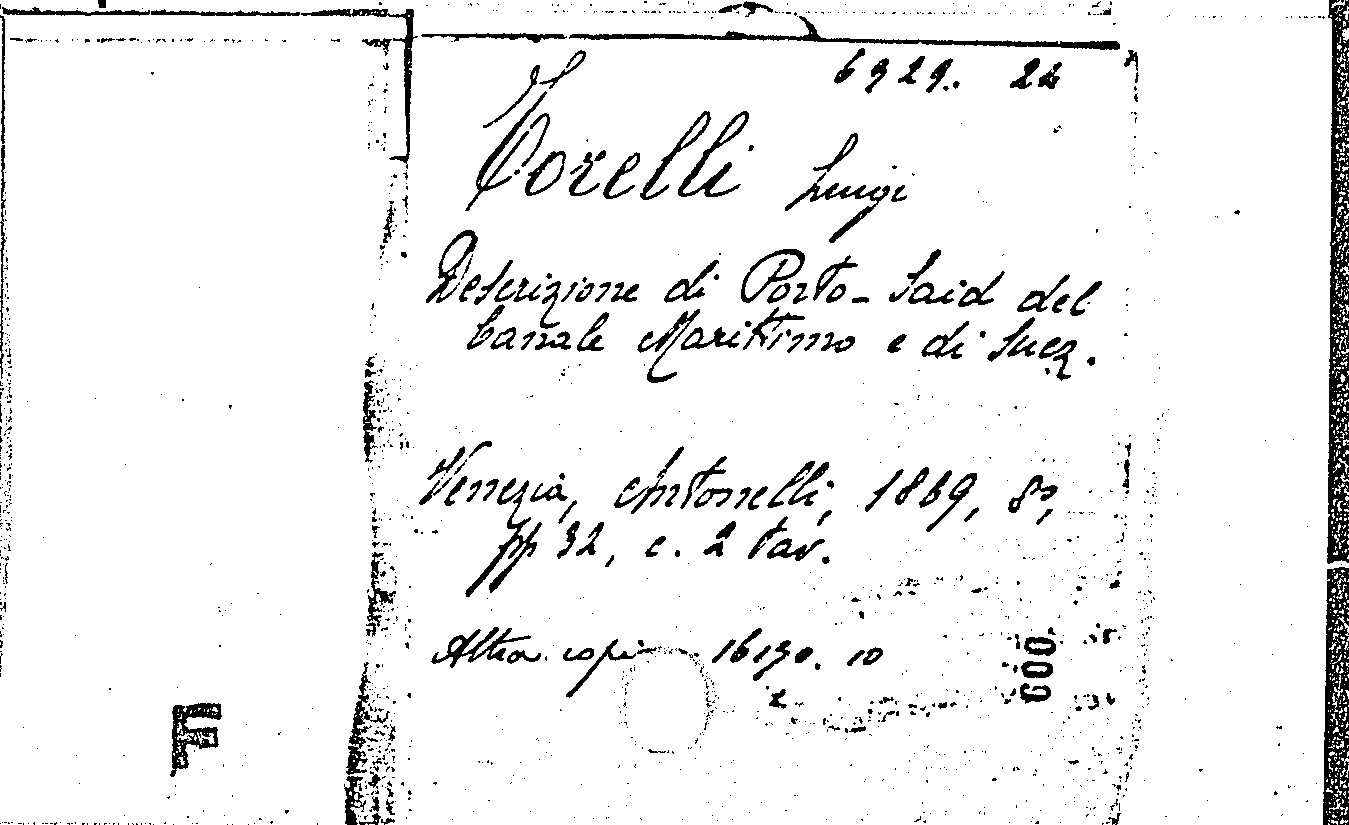 6929. 24
Torelli Luigi
Descrizione di Porto-Said del
Canale Marittimo e di Suez.
Venezia, Antonelli, 1869, 8º,
pp 32, c. 2 tav.
Altra copia 16190. 10
600
F